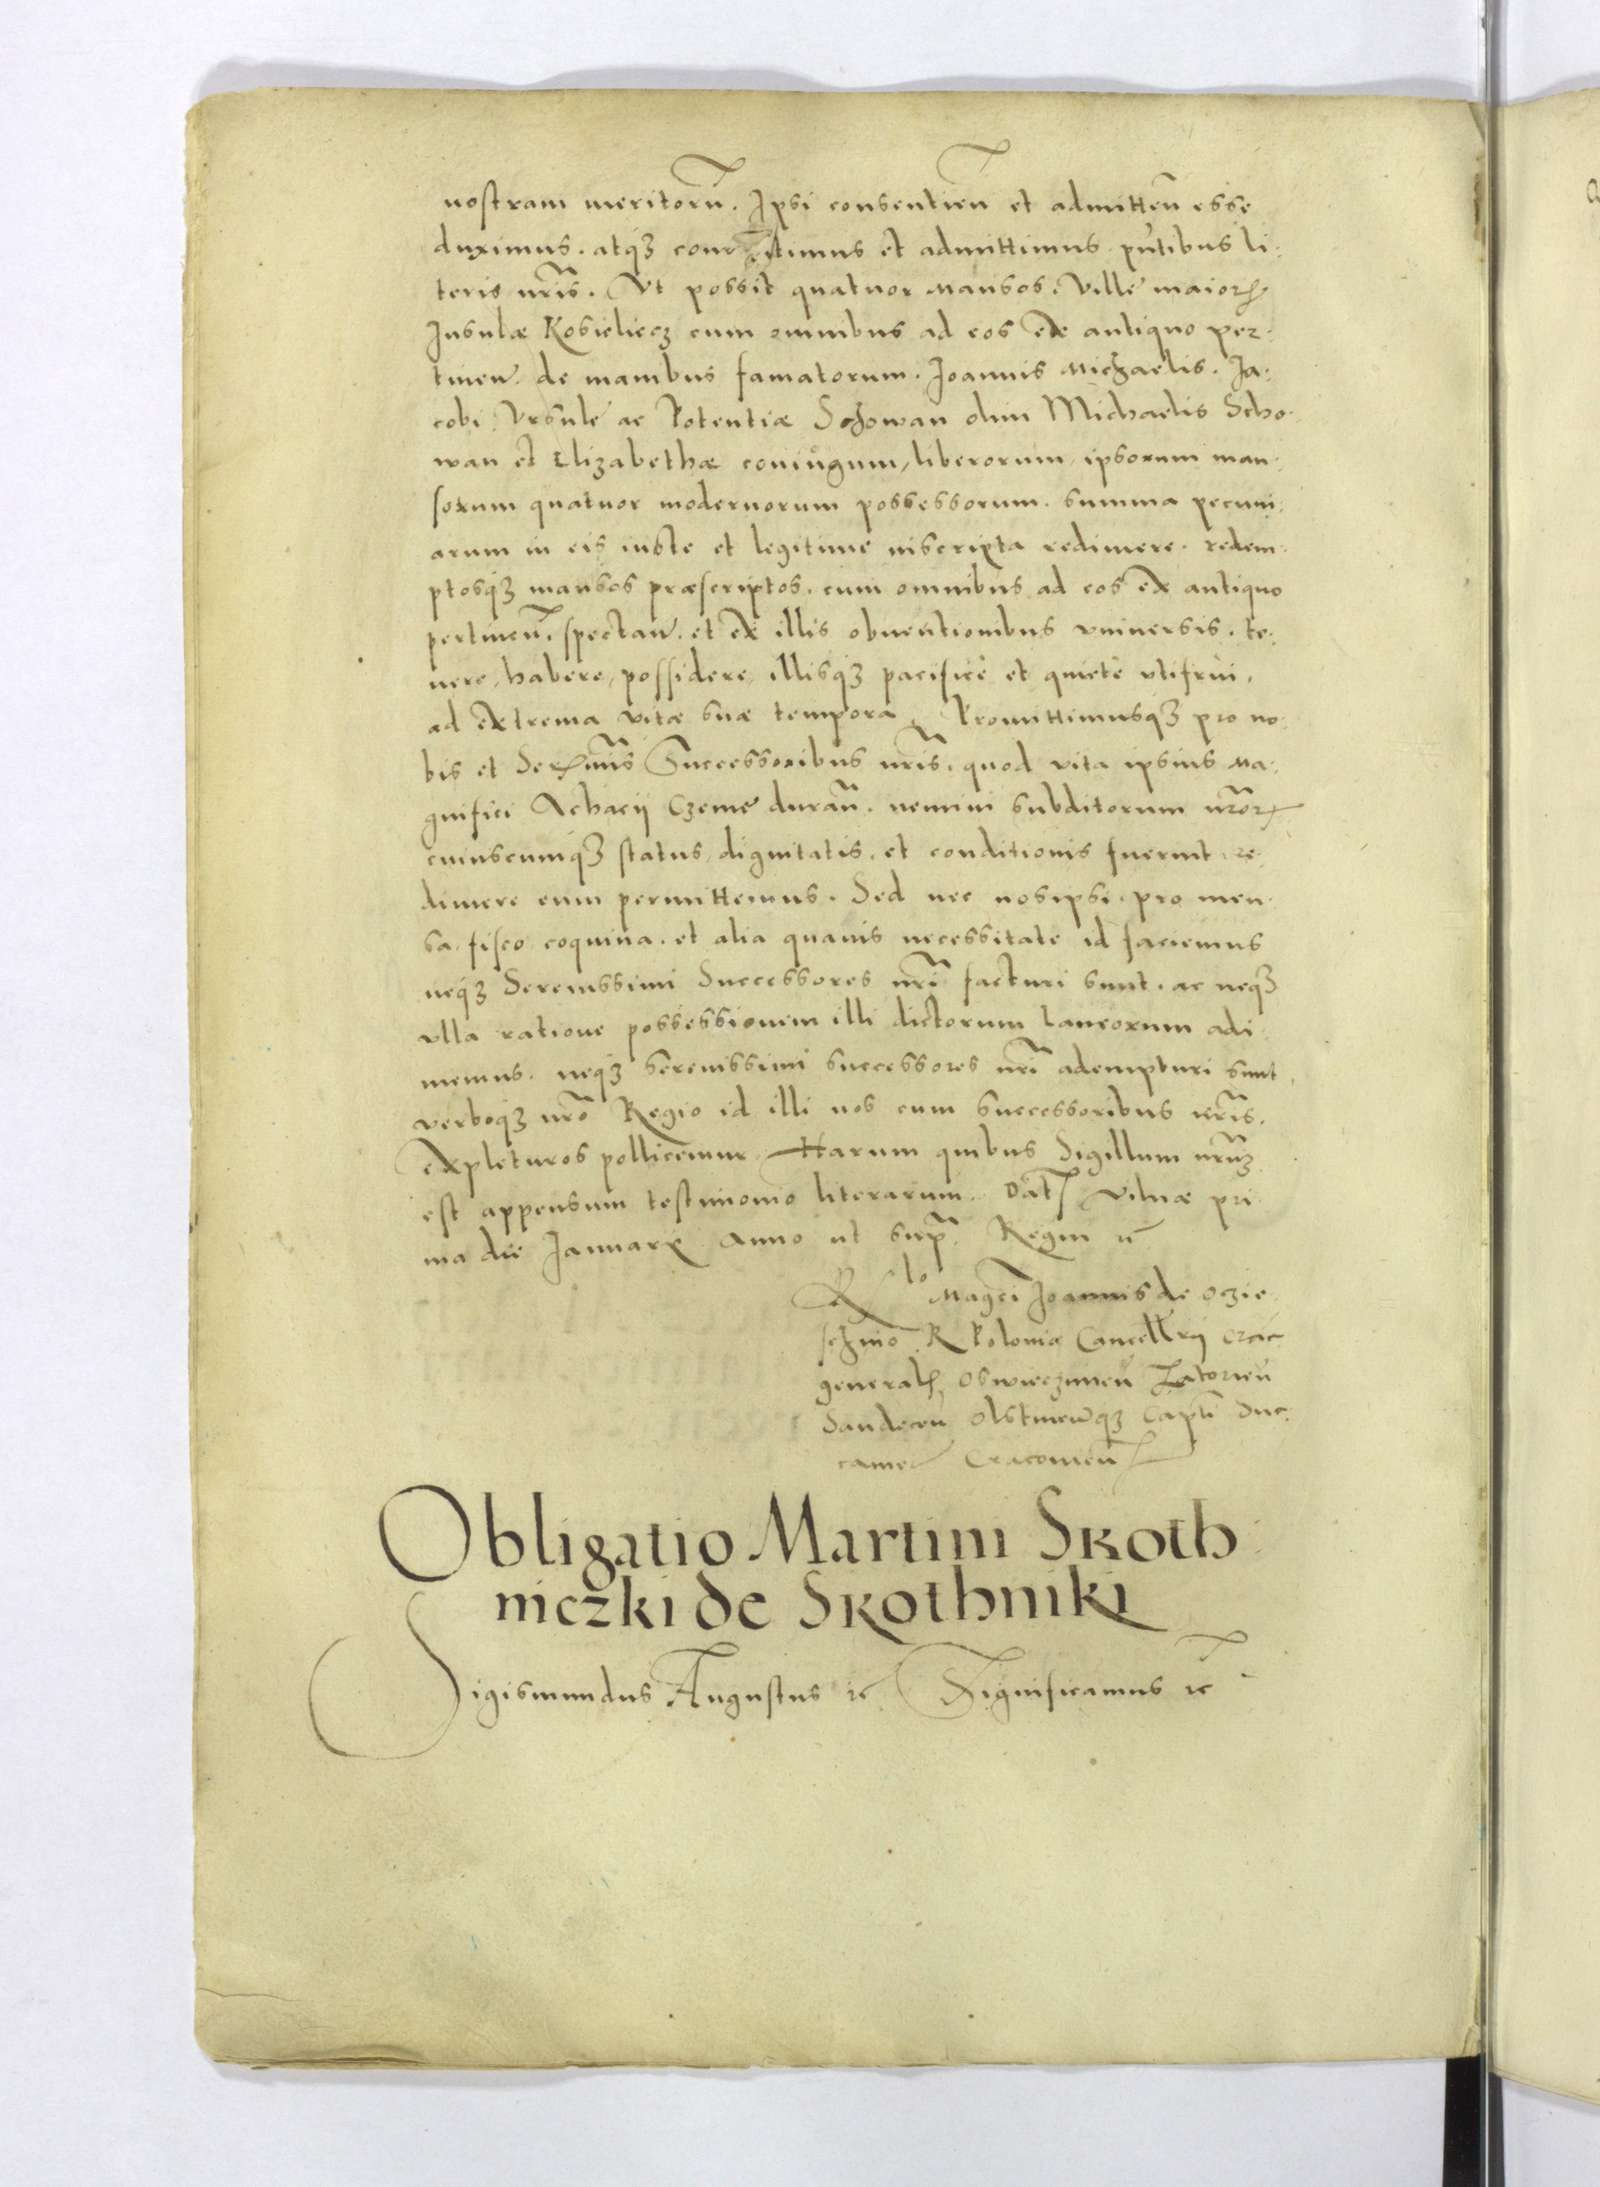 nostram meritorũ. Ipsi consentień et admitteñ esse
duximus. atqȝ consẽtimus et admittimus pñtibus li-
teris nr̃is. Vt possit quatuor mansos. Ville maioris
Insulæ Kosieliecz cum omnibus ad eos ex antiquo per-
tineñ. de manibus famatorum. Joannis Michaelis. Ja-
cobi Vrsule ac Potentiæ Schowan olim Michaelis Scho-
wan et Elizabethæ coniugum, liberorum, ipsorum man-
sorum quatuor modernorum possessorum. summa pecuni-
arum in eis iuste et legitime inscripta redimere. redem-
ptosqȝ mansos præscriptos. cum omnibus ad eos ex antiquo
pertineñ. spectañ. et ex illis obuentionibus vniuersis. te-
nere, habere, possidere, illisqȝ pacificè et quietè vtifrui,
ad extrema vitæ suæ tempora. Promittimusqȝ pro no-
bis et Serm̃is Successoribus nr̃is. quod vita ipsius Ma-
gnifici Achacij Czeme durañ. nemini subditorum nr̃or
cuiuscumqȝ status, dignitatis. et conditionis fuerint, re-
dimere eum permittemus. Sed nec nosipsi. pro men-
sa. fisco coquina. et alia quauis necessitate id faciemus
neqȝ Serenissimi Successores nr̃i facturi sunt. ac neqȝ
vlla ratione possessionem illi dictorum Laneorum adi-
memus. neqȝ serenissimi successores nr̃i adempturi sunt,
verboqȝ nr̃o Regio id illi nos cum successoribus nr̃is.
expleturos pollicemur. Harum quibus Sigillum nr̃uȝ
est appensum testimonio literarum. Dat Vilnæ pri-
ma die Januarij Anno ut supr̃. Regni ñ
Rlo Magci Joannis de Oczie-
schino R Poloniæ Cancellrij Crac
general Oswieczimeñ Zatorieñ
Sandeceñ Olstineñqȝ Capti Suc-
camer Cracouieñ
Obligatio Martini Skoth-
niczki de Skothniki
Sigismundus Augustus ꝛc Significamus ꝛc